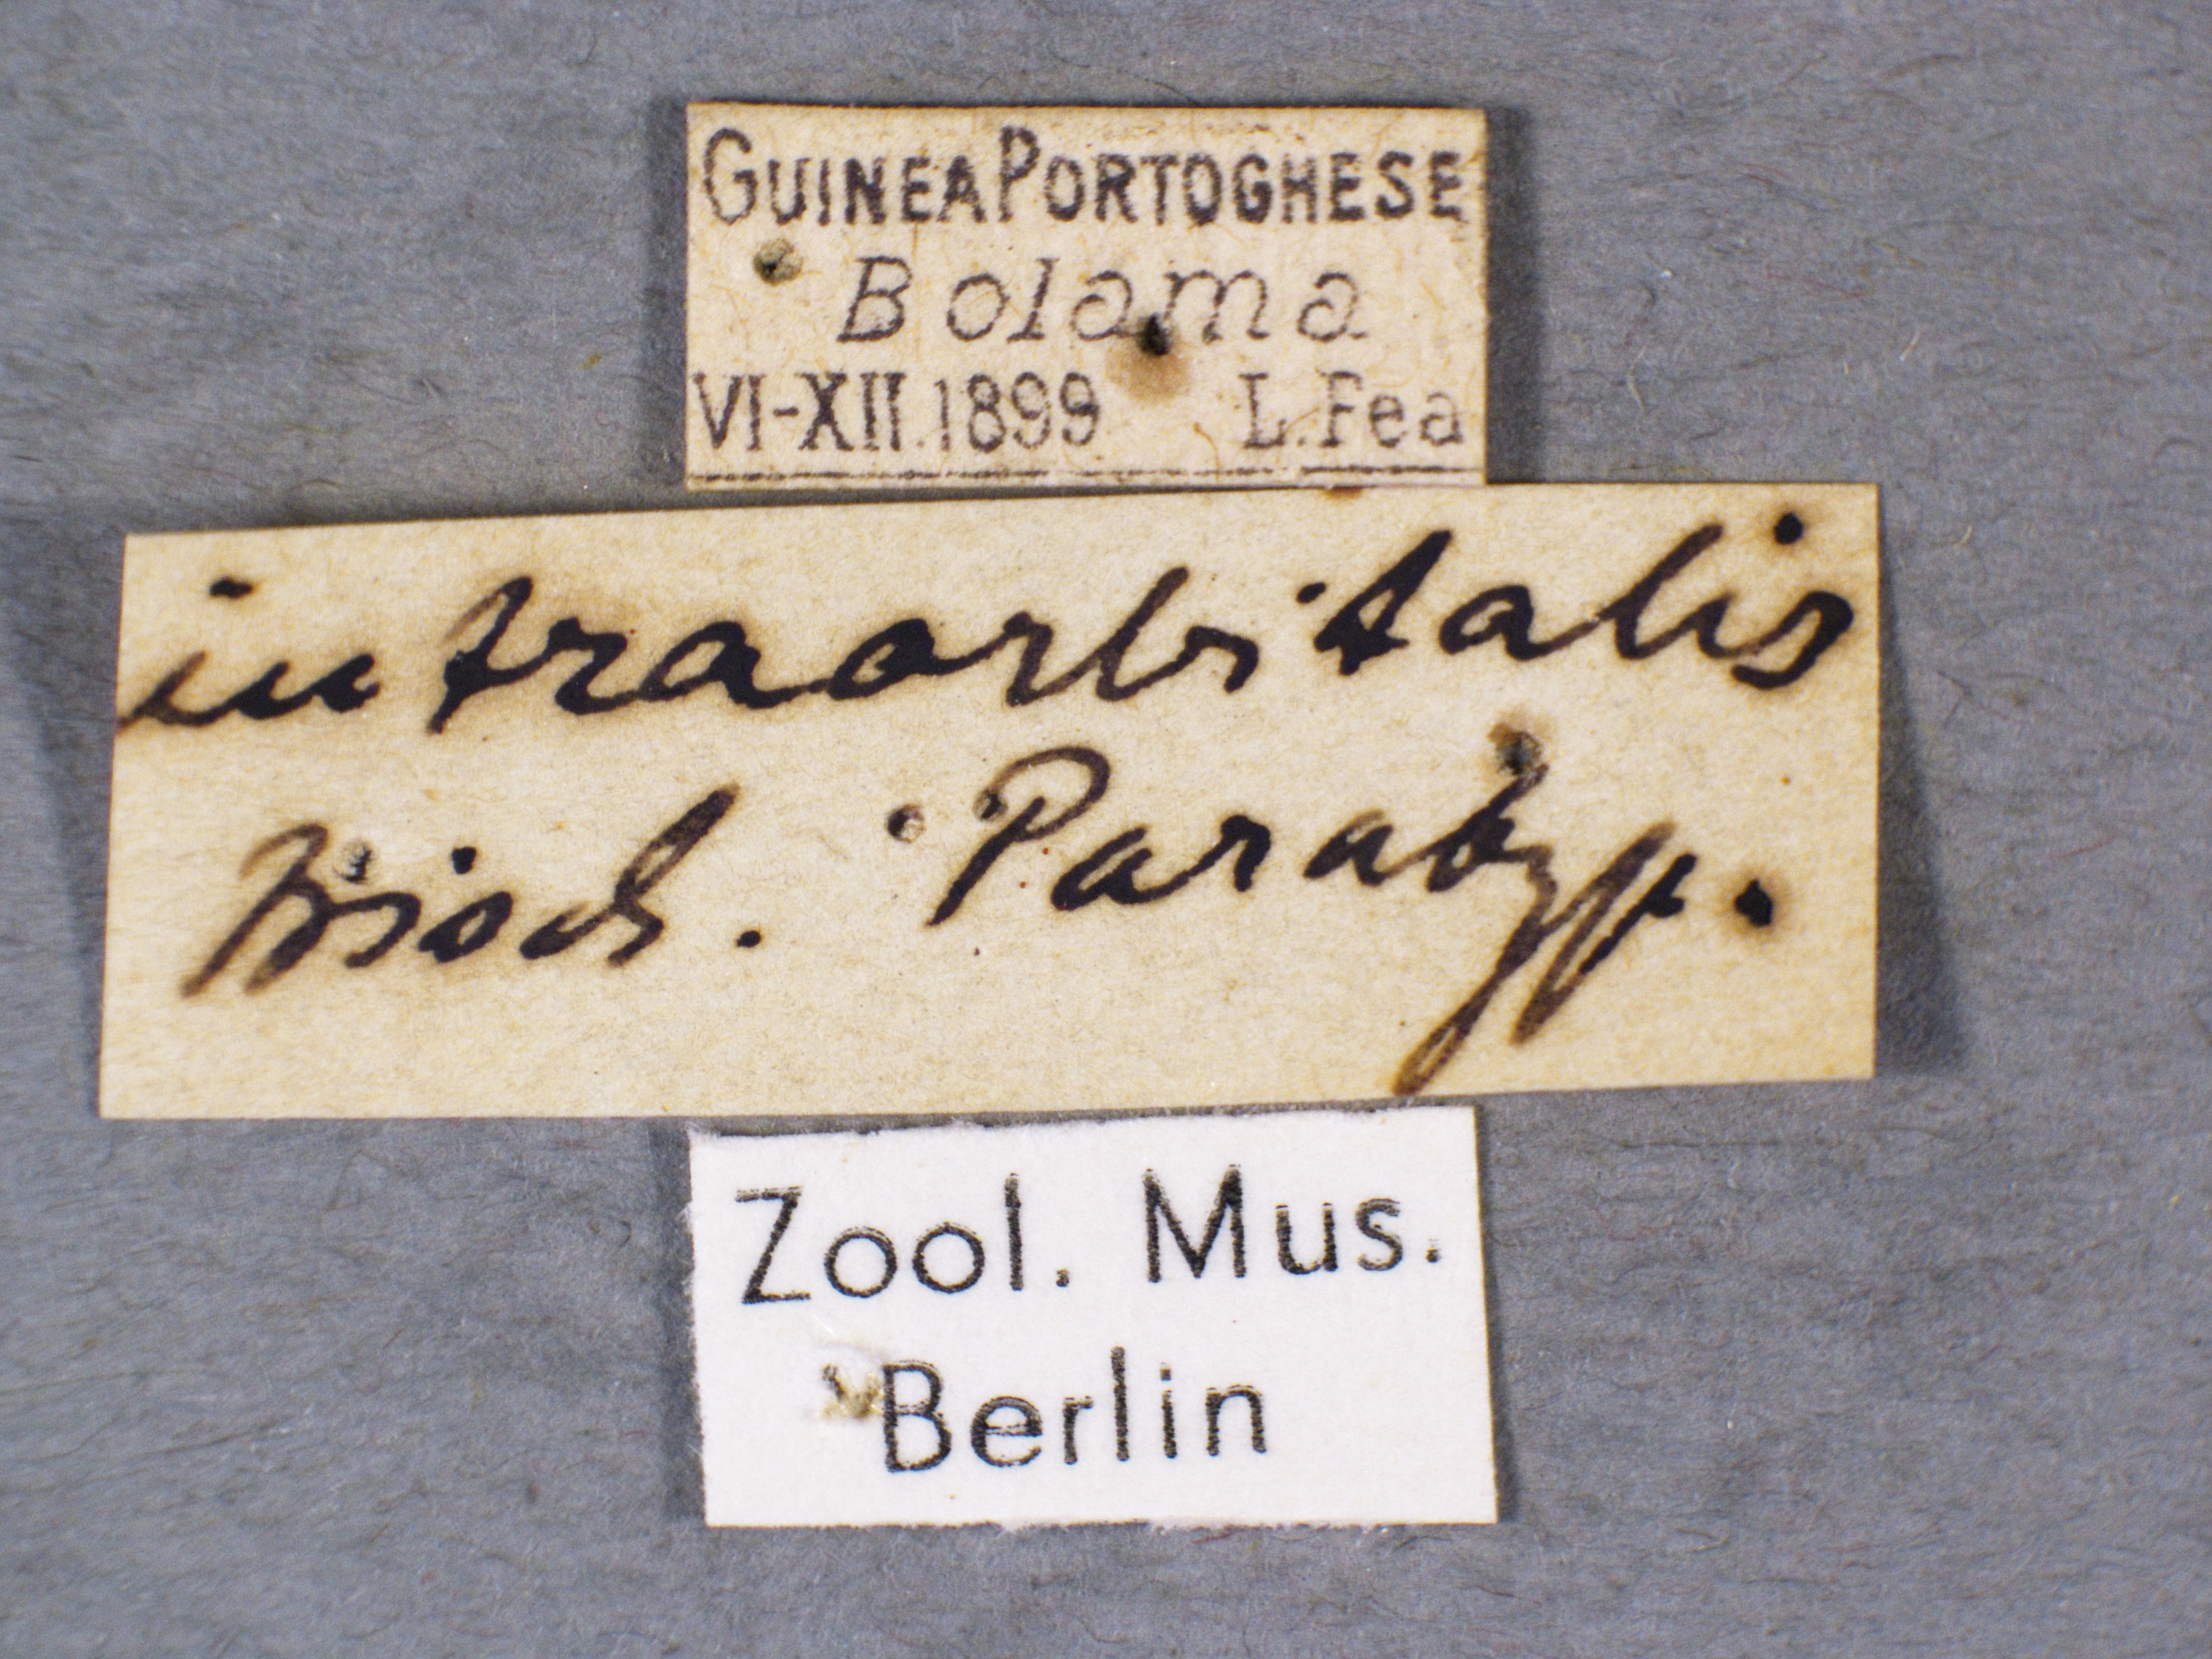 GUINEA PORTOGHESE
Bolama
VI-XII.1899 L. Fea
intraorbitalis
Bisch. Paratyp.
Zool. Mus.
Berlin